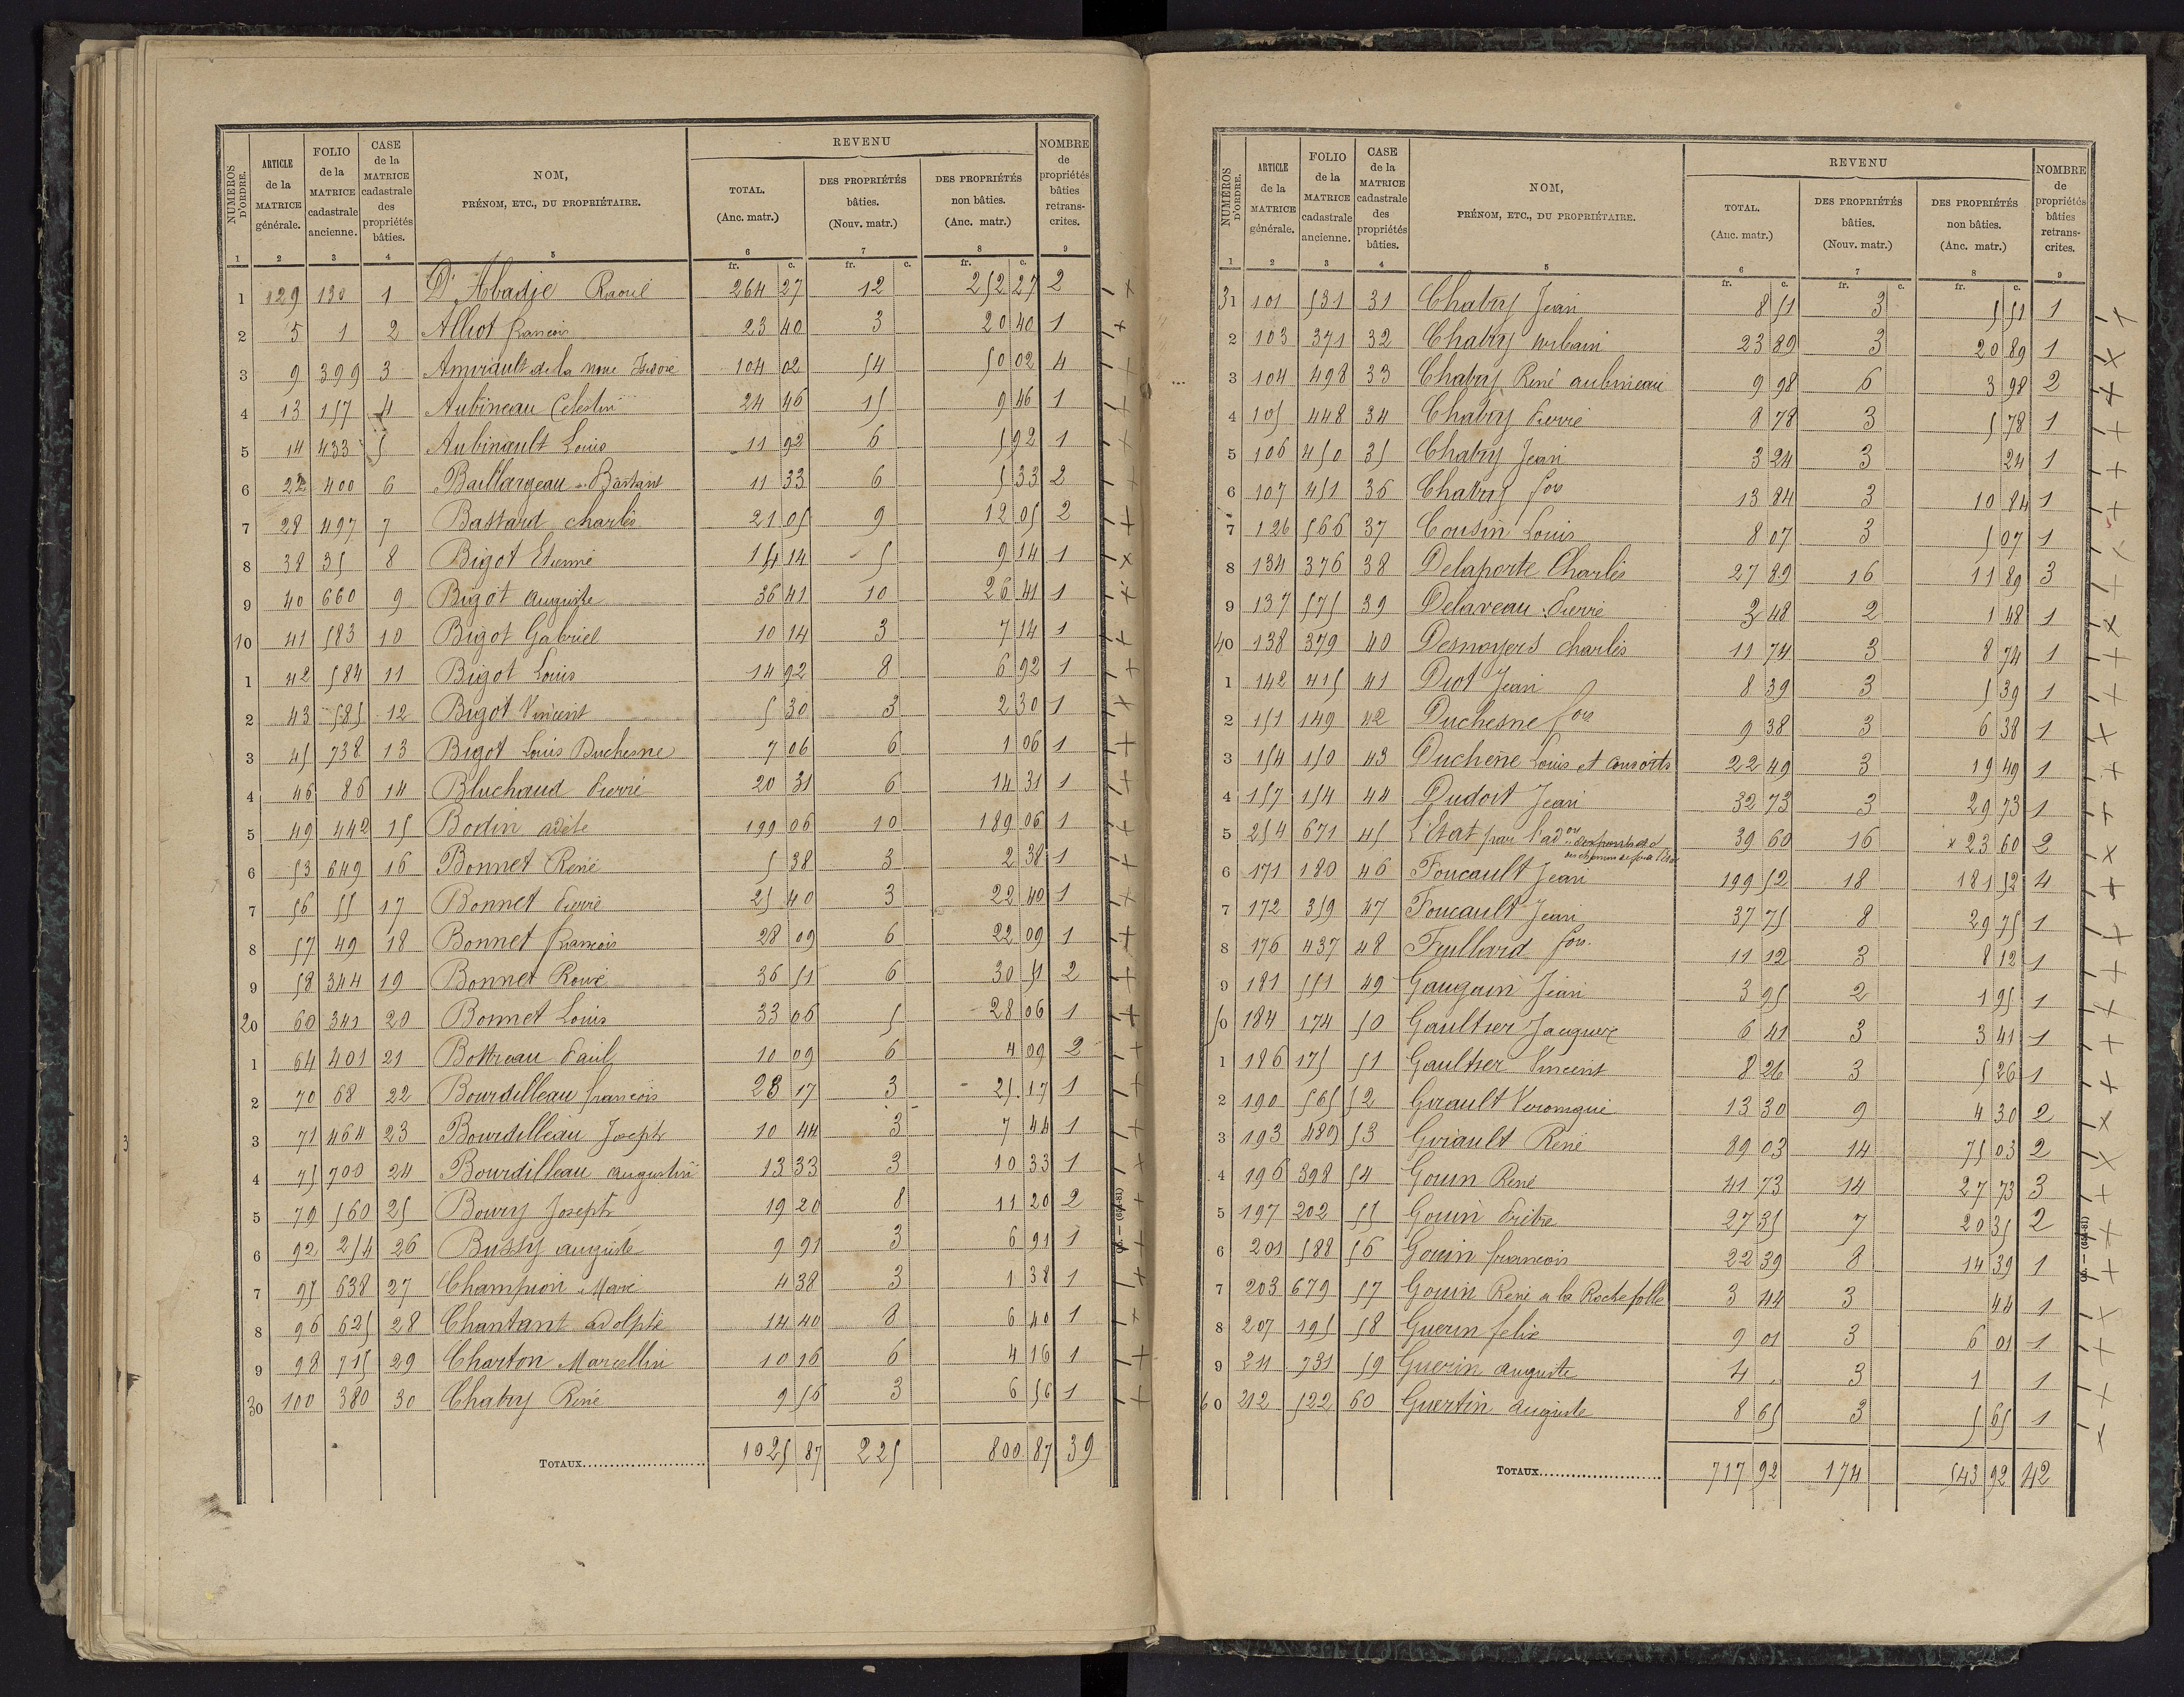 NUMÉROS D'ORDRE. | ARTICLE de la MATRICE générale. | FOLIO de la MATRICE cadastrale ancienne. | CASE de la MATRICE cadastrale des propriétés bâties. | NOM, PRÉNOM, ETC., DU PROPRIÉTAIRE. | REVENU TOTAL. (Anc. matr.) | DES PROPRIÉTÉS bâties. (Nouv. matr.) | DES PROPRIÉTÉS non bâties. (Anc. matr.) | NOMBRE de propriétés bâties retranscrites.
1 | 2 | 3 | 4 | 5 | 6 | 7 | 8 | 9
fr. c. | fr. c. | fr. c.
1 | 129 | 130 | 1 | D'Abadie Raoul | 264 27 | 12 | 252 27 | 2
2 | 5 | 1 | 2 | Alliot francois | 23 40 | 3 | 20 40 | 1
3 | 9 | 399 | 3 | Amirault de la noue Isidore | 104 02 | 54 | 50 02 | 4
4 | 13 | 157 | 4 | Aubineau Celestin | 24 46 | 15 | 9 46 | 1
5 | 14 | 433 | 5 | Aubinault Louis | 11 92 | 6 | 5 92 | 1
6 | 22 | 400 | 6 | Baillargeau Bastant | 11 33 | 6 | 5 33 | 2
7 | 28 | 497 | 7 | Bastard charles | 21 05 | 9 | 12 05 | 2
8 | 38 | 35 | 8 | Bigot Etienne | 14 14 | 5 | 9 14 | 1
9 | 40 | 660 | 9 | Bigot auguste | 36 41 | 10 | 26 41 | 1
10 | 41 | 583 | 10 | Bigot Gabriel | 10 14 | 3 | 7 14 | 1
1 | 42 | 584 | 11 | Bigot Louis | 14 92 | 8 | 6 92 | 1
2 | 43 | 585 | 12 | Bigot Vincent | 5 30 | 3 | 2 30 | 1
3 | 45 | 738 | 13 | Bigot Louis Duchesne | 7 06 | 6 | 1 06 | 1
4 | 46 | 86 | 14 | Bluchaud Pierre | 20 31 | 6 | 14 31 | 1
5 | 49 | 442 | 15 | Bodin adèle | 199 06 | 10 | 189 06 | 1
6 | 53 | 649 | 16 | Bonnet René | 5 38 | 3 | 2 38 | 1
7 | 56 | 55 | 17 | Bonnet Pierre | 25 40 | 3 | 22 40 | 1
8 | 57 | 49 | 18 | Bonnet francois | 28 09 | 6 | 22 09 | 1
9 | 58 | 344 | 19 | Bonnet | 36 51 | 6 | 30 51 | 2
20 | 60 | 341 | 20 | Bonnet Louis | 33 06 | 5 | 28 06 | 1
1 | 64 | 401 | 21 | Bottreau Paul | 10 09 | 6 | 4 09 | 2
2 | 70 | 68 | 22 | Bourdilleau francois | 28 17 | 3 | 25 17 | 1
3 | 71 | 464 | 23 | Bourdilleau Joseph | 10 44 | 3 | 7 44 | 1
4 | 75 | 700 | 24 | Bourdilleau augustin | 13 33 | 3 | 10 33 | 1
5 | 79 | 560 | 25 | Boury Joseph | 19 20 | 8 | 11 20 | 2
6 | 92 | 254 | 26 | Bussy auguste | 9 91 | 3 | 6 91 | 1
7 | 95 | 638 | 27 | Champion Marie | 4 38 | 3 | 1 38 | 1
8 | 96 | 625 | 28 | Chantant adolphe | 14 40 | 8 | 6 40 | 1
9 | 98 | 715 | 29 | Charton Marcellin | 10 16 | 6 | 4 16 | 1
30 | 100 | 380 | 30 | Chabry René | 9 56 | 3 | 6 56 | 1
TOTAUX | 1025 87 | 225 | 800 87 | 39
NUMÉROS D'ORDRE. | ARTICLE de la MATRICE générale. | FOLIO de la MATRICE cadastrale ancienne. | CASE de la MATRICE cadastrale des propriétés bâties. | NOM, PRÉNOM, ETC., DU PROPRIÉTAIRE. | REVENU TOTAL. (Anc. matr.) | DES PROPRIÉTÉS bâties. (Nouv. matr.) | DES PROPRIÉTÉS non bâties. (Anc. matr.) | NOMBRE de propriétés bâties retranscrites.
1 | 2 | 3 | 4 | 5 | 6 | 7 | 8 | 9
fr. c. | fr. c. | fr. c.
31 | 101 | 531 | 31 | Chabry Jean | 8 51 | 3 | 5 51 | 1
2 | 103 | 371 | 32 | Chabry urbain | 23 89 | 3 | 20 89 | 1
3 | 104 | 498 | 33 | Chabry René aubineau | 9 98 | 6 | 3 98 | 2
4 | 105 | 448 | 34 | Chabry Pierre | 8 78 | 3 | 5 78 | 1
5 | 106 | 450 | 35 | Chabry Jean | 3 24 | 3 | 24 | 1
6 | 107 | 451 | 36 | Chabry fois | 13 84 | 3 | 10 84 | 1
7 | 126 | 566 | 37 | Cousin Louis | 8 07 | 3 | 5 07 | 1
8 | 134 | 376 | 38 | Delaporte Charles | 27 89 | 16 | 11 89 | 3
9 | 137 | 575 | 39 | Delaveau Pierre | 3 48 | 2 | 1 48 | 1
40 | 138 | 379 | 40 | Desnoyers charles | 11 74 | 3 | 8 74 | 1
1 | 142 | 415 | 41 | Diot Jean | 8 39 | 3 | 5 39 | 1
2 | 151 | 149 | 42 | Duchesne fois | 9 38 | 3 | 6 38 | 1
3 | 154 | 150 | 43 | Duchêne Louis et consorts | 22 49 | 3 | 19 49 | 1
4 | 157 | 154 | 44 | Dudoit Jean | 32 73 | 3 | 29 73 | 1
5 | 254 | 671 | 45 | L'Etat par l'adon des ponts et | 39 60 | 16 | × 23 60 | 2
6 | 171 | 180 | 46 | Foucault Jean | 199 52 | 18 | 181 52 | 4
7 | 172 | 359 | 47 | Foucault Jean | 37 75 | 8 | 29 75 | 1
8 | 176 | 437 | 48 | Fuillard fois. | 11 12 | 3 | 8 12 | 1
9 | 181 | 551 | 49 | Gaugain Jean | 3 95 | 2 | 1 95 | 1
50 | 184 | 174 | 50 | Gaultier Jacques | 6 41 | 3 | 3 41 | 1
1 | 186 | 175 | 51 | Gaultier Vincent | 8 26 | 3 | 5 26 | 1
2 | 190 | 565 | 52 | Girault Veronique | 13 30 | 9 | 4 30 | 2
3 | 193 | 489 | 53 | Girault René | 89 03 | 14 | 75 03 | 2
4 | 196 | 398 | 54 | Gouin René | 41 73 | 14 | 27 73 | 3
5 | 197 | 202 | 55 | Gouin | 27 35 | 7 | 20 35 | 2
6 | 201 | 588 | 56 | Gouin francois | 22 39 | 8 | 14 39 | 1
7 | 203 | 679 | 57 | Gouin René a la Rochefolle | 3 44 | 3 | 44 | 1
8 | 207 | 195 | 58 | Guerin felix | 9 01 | 3 | 6 01 | 1
9 | 211 | 731 | 59 | Guerin auguste | 4 . | 3 | 1 | 1
60 | 212 | 522 | 60 | Guertin auguste | 8 65 | 3 | 5 65 | 1
TOTAUX | 717 92 | 174 | 543 92 | 42